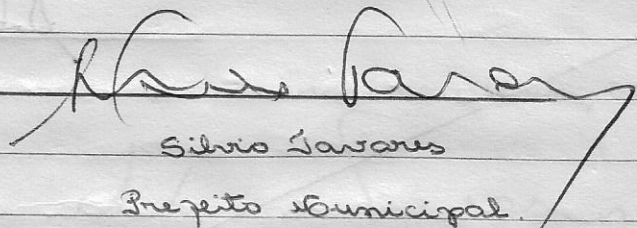 Silvio Tavares
Prefeito Municipal.